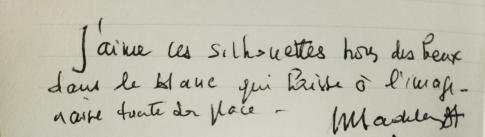 J'aime ces silhouettes hors des lieux
dans le blanc qui laisse à l'imagi-
naire toute sa place -